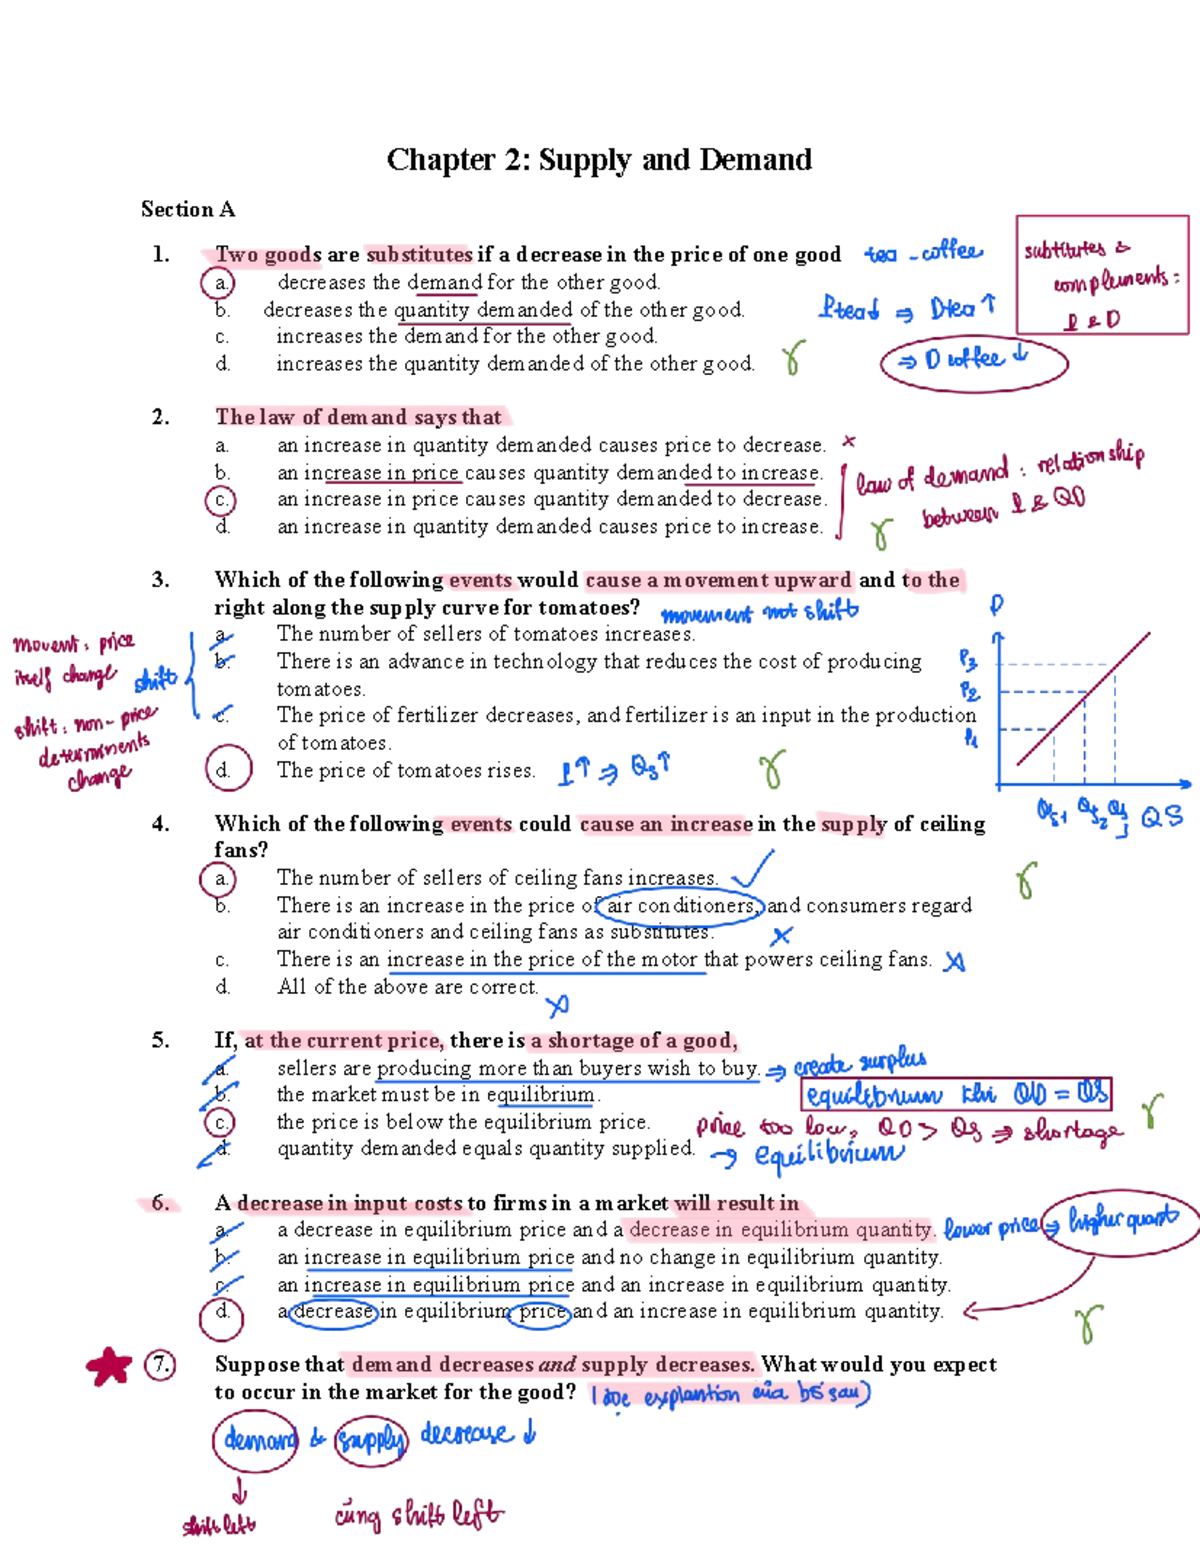 Chapter 2: Supply and Demand
Section A
1. Two goods are substitutes if a decrease in the price of one good
tea - coffee
substitutes &
complements:
P & D
a. decreases the demand for the other good.
b. decreases the quantity demanded of the other good.
Ptea↓ ⇒ Dtea ↑
c. increases the demand for the other good.
d. increases the quantity demanded of the other good.
⇒ D coffee ↓
2. The law of demand says that
a. an increase in quantity demanded causes price to decrease. x
b. an increase in price causes quantity demanded to increase.
c. an increase in price causes quantity demanded to decrease.
d. an increase in quantity demanded causes price to increase.
law of demand : relationship
between P & QD
3. Which of the following events would cause a movement upward and to the
right along the supply curve for tomatoes?
movement not shift
a. The number of sellers of tomatoes increases.
b. There is an advance in technology that reduces the cost of producing
tomatoes.
c. The price of fertilizer decreases, and fertilizer is an input in the production
of tomatoes.
d. The price of tomatoes rises.
P↑ ⇒ Qs↑
movent : price
itself change
shift
shift : non-price
determinents
change
P
P3
P2
P1
Qs1 Qs2 Qs3 QS
4. Which of the following events could cause an increase in the supply of ceiling
fans?
a. The number of sellers of ceiling fans increases.
b. There is an increase in the price of air conditioners, and consumers regard
air conditioners and ceiling fans as substitutes.
c. There is an increase in the price of the motor that powers ceiling fans.
d. All of the above are correct.
5. If, at the current price, there is a shortage of a good,
a. sellers are producing more than buyers wish to buy. ⇒ create surplus
b. the market must be in equilibrium.
equilibrium khi QD = QS
c. the price is below the equilibrium price.
price too low, QD > QS ⇒ shortage
d. quantity demanded equals quantity supplied. → equilibrium
6. A decrease in input costs to firms in a market will result in
a. a decrease in equilibrium price and a decrease in equilibrium quantity. lower price ⇒ higher quant
b. an increase in equilibrium price and no change in equilibrium quantity.
c. an increase in equilibrium price and an increase in equilibrium quantity.
d. a decrease in equilibrium price and an increase in equilibrium quantity.
7. Suppose that demand decreases and supply decreases. What would you expect
to occur in the market for the good?
demand & supply decrease ↓
shift left
cũng shift left